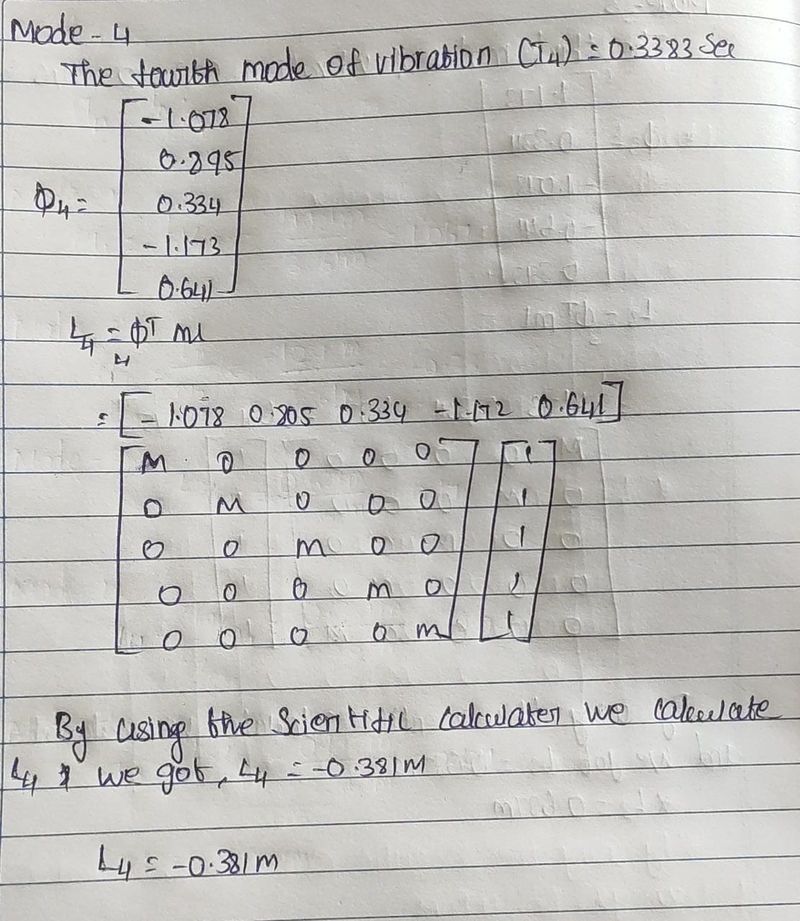 Mode-4
The fourth mode of vibration (T4) = 0.3383 Sec
Φ4 =
[-1.078
0.895
0.334
-1.173
0.641]
L4 = Φ4T m1
= [-1.078 0.805 0.334 -1.172 0.641]
[M 0 0 0 0] [1
0 M 0 0 0 1
0 0 m 0 0 1
0 0 0 m 0 1
0 0 0 0 m] 1]
By using the Scientific calculater we calculate
L4 & we got, L4 = -0.381M
L4 = -0.381m